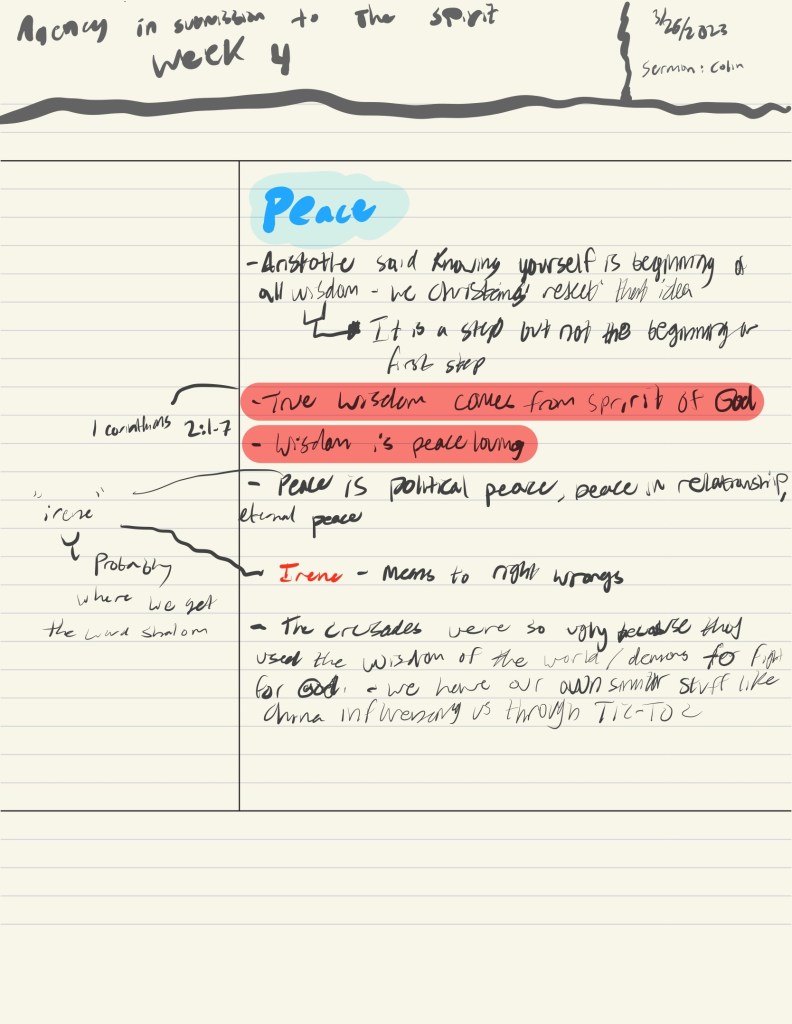 Agency in submission to The spirit
Week 4
3/26/2023
Sermon: Colin
Peace
- Aristotle said Knowing yourself is beginning of
all wisdom - we Christians reject that idea
It is a step but not the beginning or
first step
- True wisdom comes from spririt of God
1 corinthians 2:1-7
- Wisdom is peace loving
- Peace is political peace, peace in relationship,
eternal peace
"irene"
Probably
where we get
the word shalom
- Irene - Means to right wrongs
- The crusades were so ugly because they
used the wisdom of the world/demons to fight
for God. - we have our own similar stuff like
China influencing us through